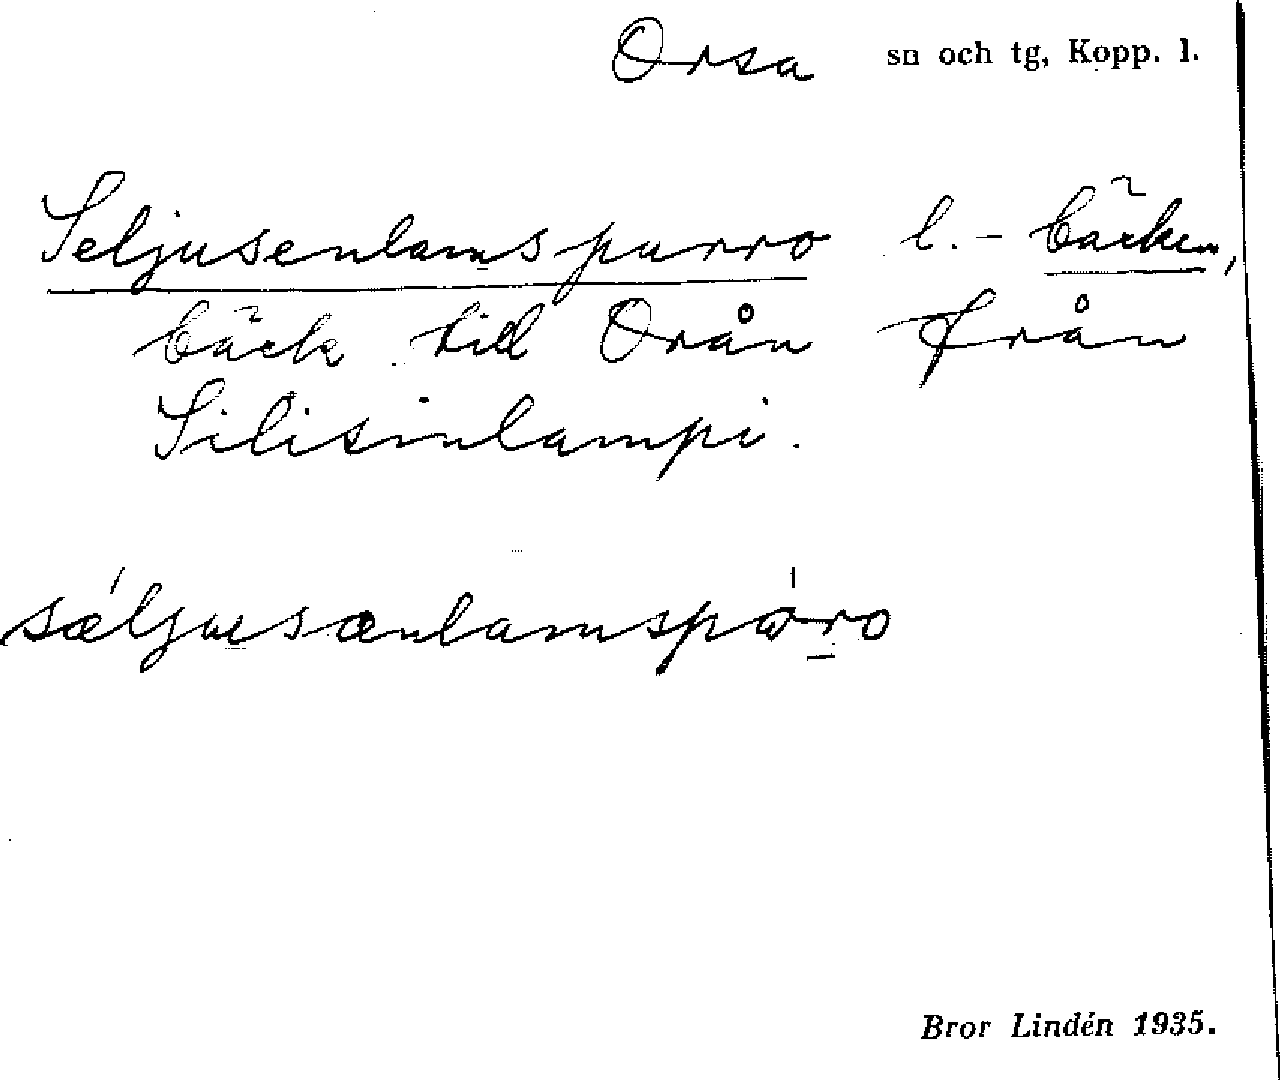 Orsa sn och tg, Kopp. l.
Seljusenlamspurro l. - bäcken,
bäck till Orån från
Silisinlampi.
sæ´ljusænlamspω´ro
Bror Lindén 1935.